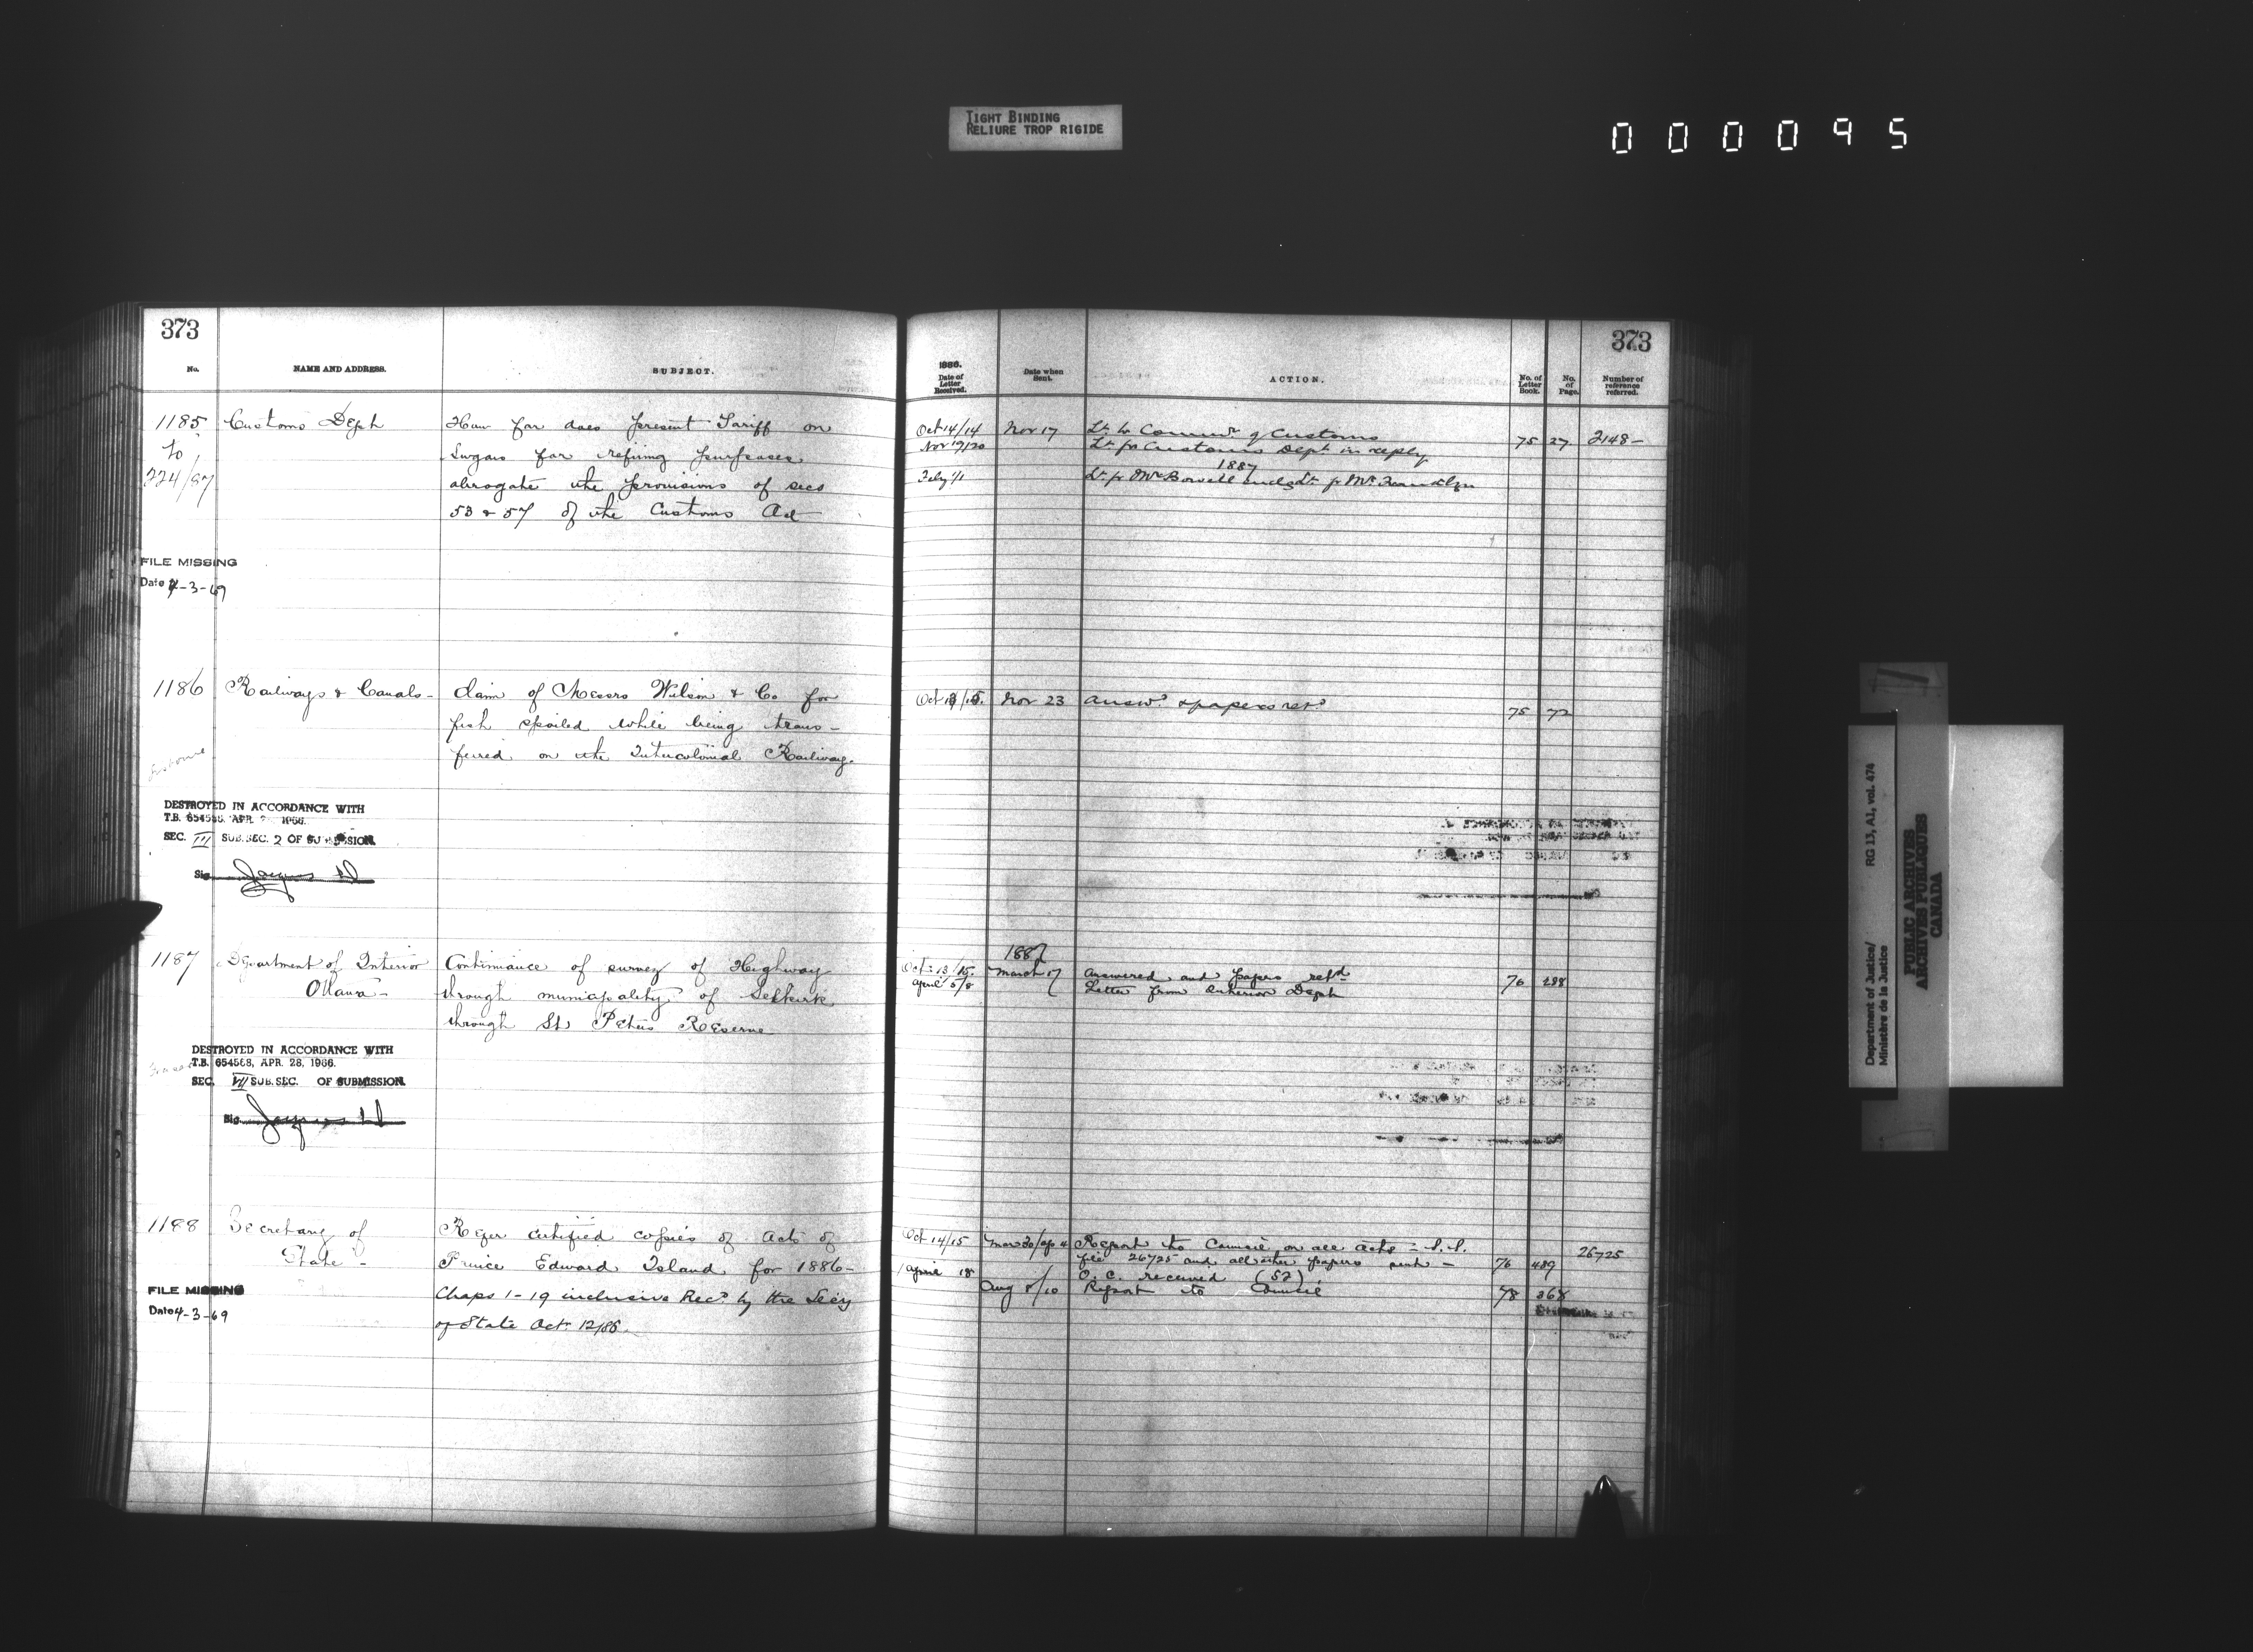 TIGHT BINDING
RELIURE TROP RIGIDE
000095
373
No.
NAME AND ADDRESS.
SUBJECT.
1185
to
224/87
Customs Dept
How far does present Tariff on
Sugars for refining purposes
abrogate the provisions of secs
53 & 57 of the Customs Act
FILE MISSING
Date 4-3-69
1186
Railways & Canals-
Claim of Messrs Wilson & Co for
fish spoiled while being trans-
ferred on the Intercolonial Railway.
DESTROYED IN ACCORDANCE WITH
T.B. 654568, APR. 1966.
SEC. III SUB. SEC. 2 OF SUBMISSION.
Sig.
1187
Department of Interior
Ottawa-
Continuance of survey of Highway
through municipality of Selkirk
through St Peters Reserve
DESTROYED IN ACCORDANCE WITH
T.B. 654568, APR. 28, 1966.
SEC. VII SUB. SEC. OF SUBMISSION.
Sig.
1188
Secretary of
State-
Refer certified copies of acts of
Prince Edward Island for 1886-
Chaps 1-19 inclusive Recd by the Secy
of State Oct 12/86
FILE MISSING
Date 4-3-69
373
1886.
Date of
Letter
Received.
Date when
Sent.
ACTION.
No. of
Letter
Book.
No.
of
Page.
Number of
reference
referred.
Oct 14/14
Nov 17
Lr to Commr of Customs
75 27
2148-
Nov 19/20
Lr fr Customs Dept in reply
1887
Feby 1/1
Lr fr Mr Bowell encls Lr fr Mr
Oct 13/15.
Nov 23
Answd & papers retd
75 72
1887
Oct 13/15.
March 17
Answered and papers retd
76 288
April 5/8
Letter from Interior Dept
Oct 14/15
Mar 30/Ap 4
Report to Council on all acts
file 26725 and all other papers sent -
76 489
26725
April 18
O.C. received (52)
Aug 8/10
Report to Council
78 368
Department of Justice/ RG 13, A1, vol. 474
Ministère de la Justice
PUBLIC ARCHIVES
ARCHIVES PUBLIQUES
CANADA